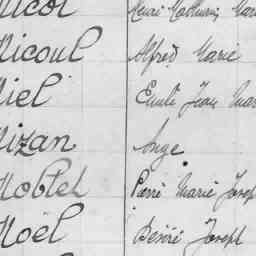 Nicol Henri Mathurin Marie
Nicoul Alfred Marie
Niel Emile Jean Mar
Nizan Ange
Noblet Pierre Marie Josep
Noël Désiré Joseph